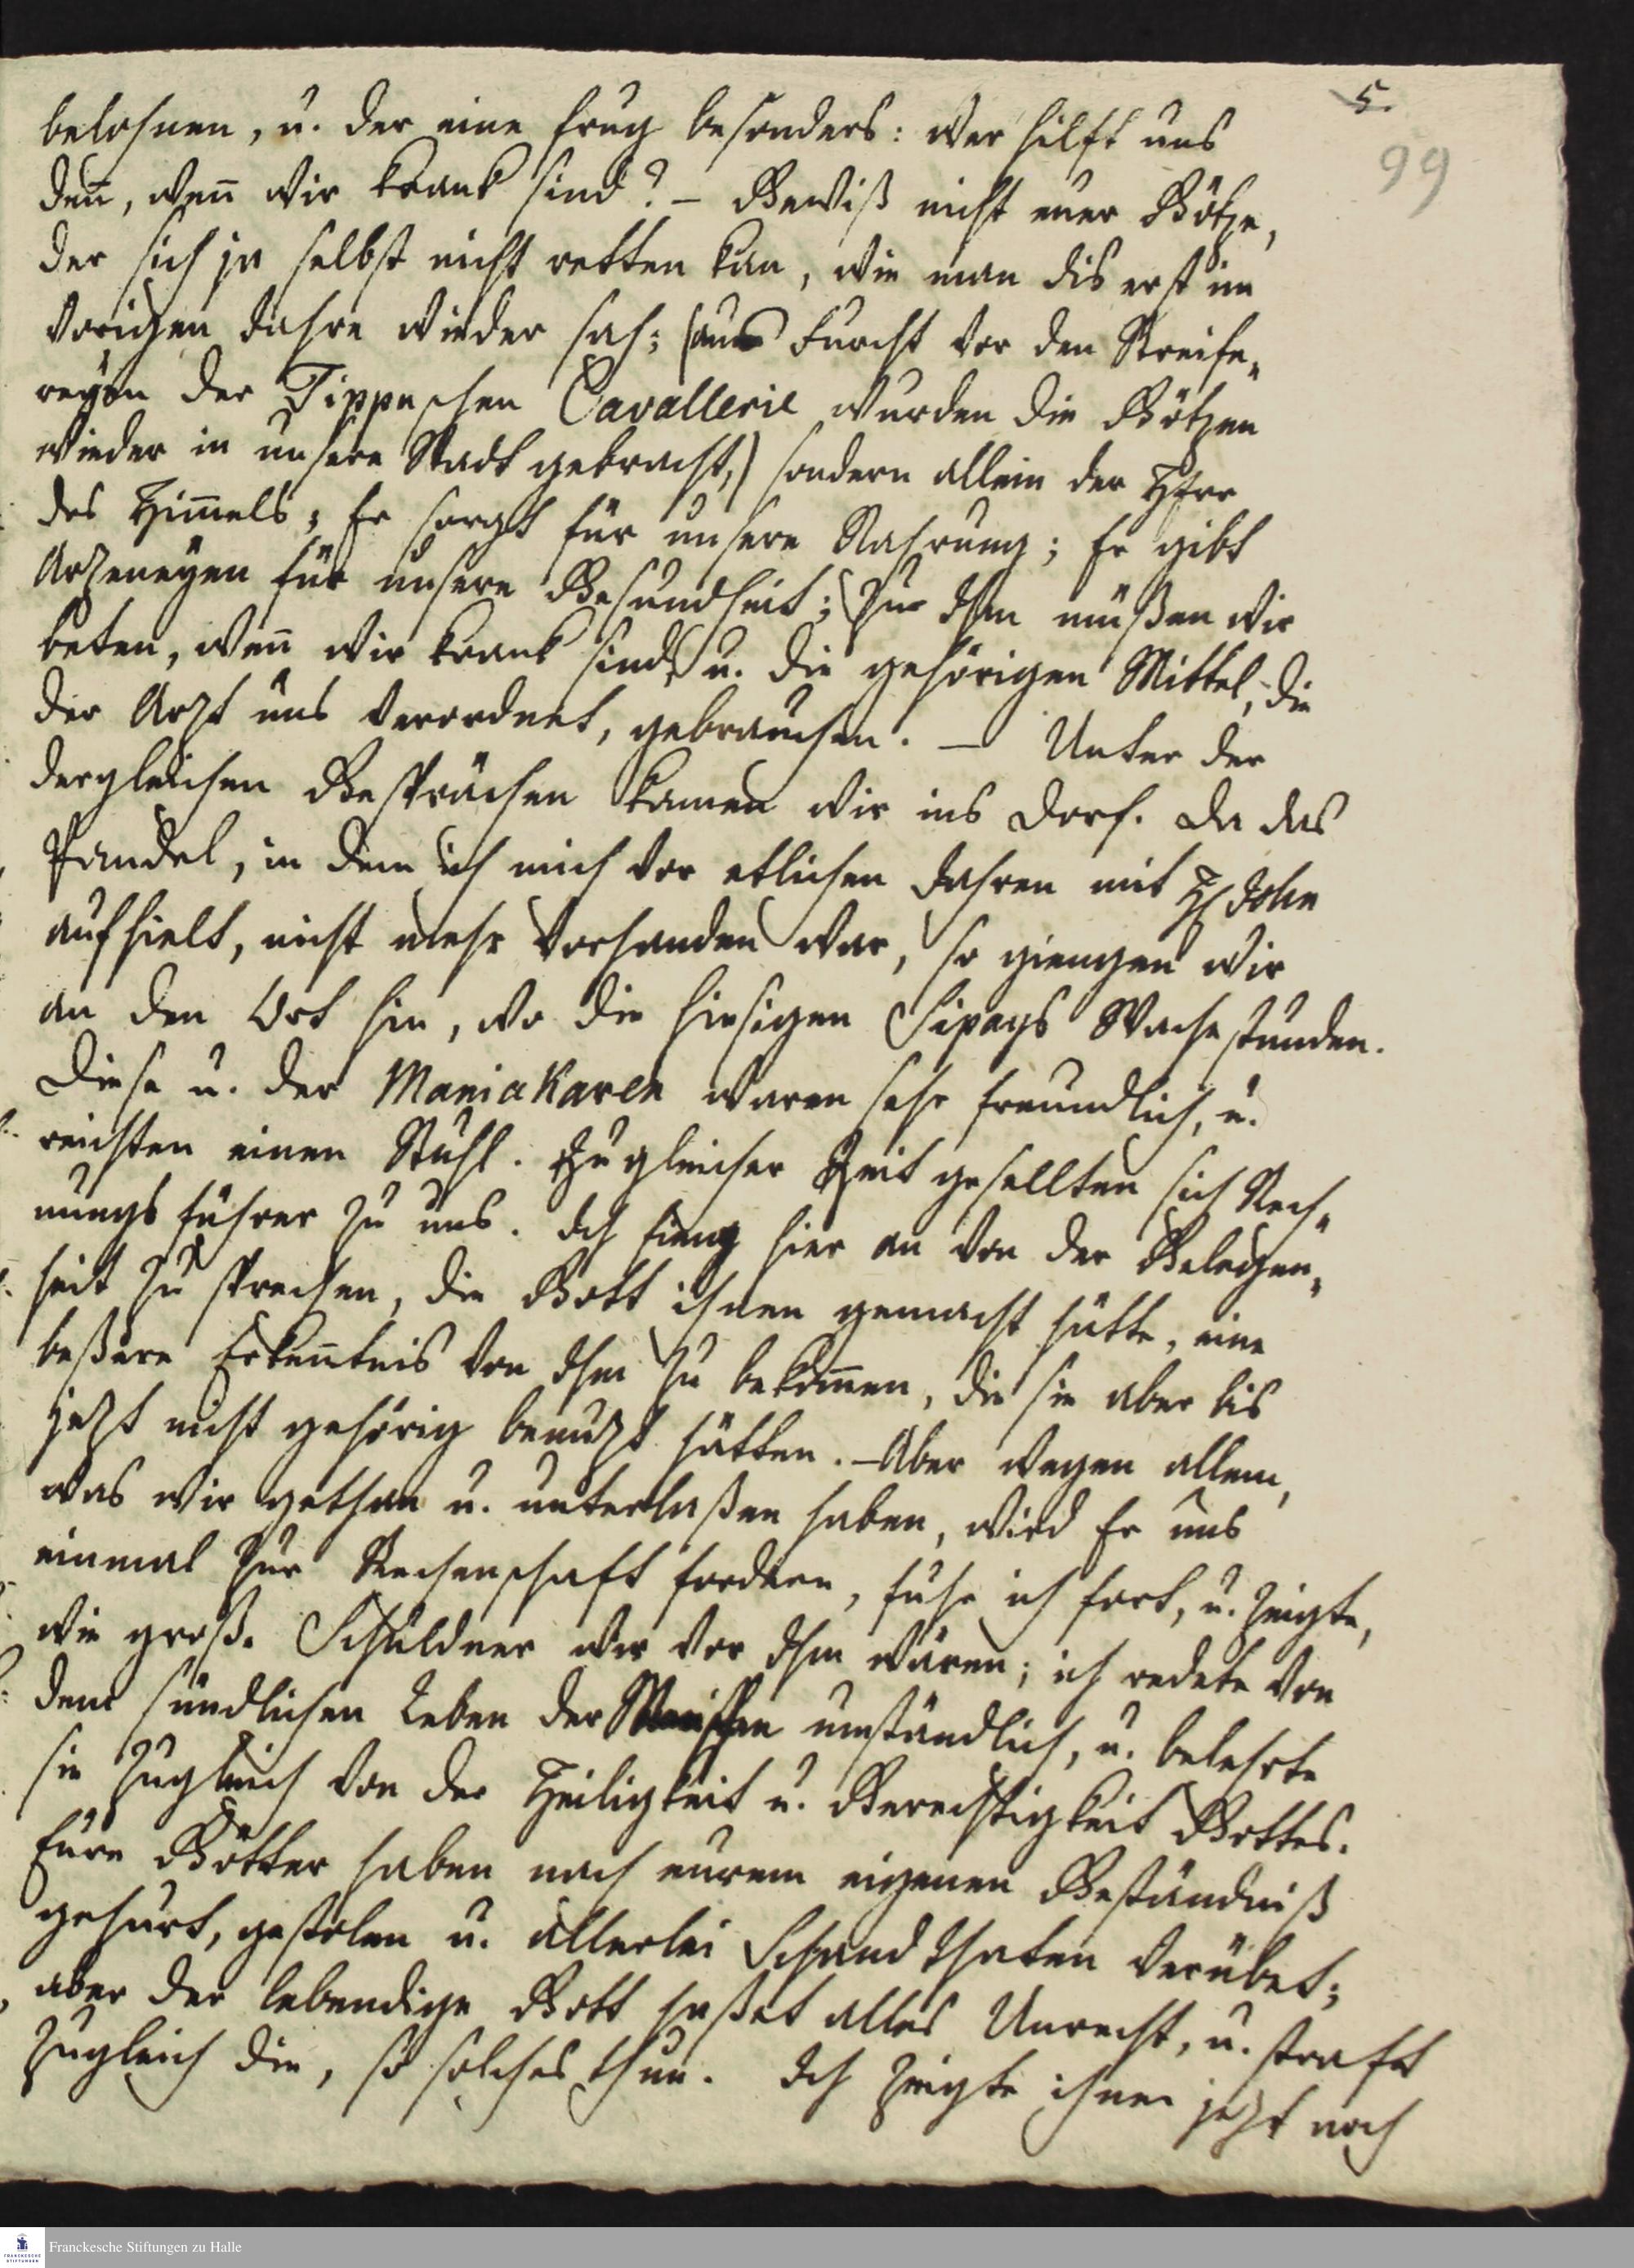 5.
99
belohnen, u. der eine frug besonders: Wer hilft uns
deñ, weñ wir krank sind? – Gewiß nicht euer Götze,
der sich ja selbst nicht retten kan, wie man dis erst im
vorigen Jahre wieder sah; (aus Furcht vor den Streife„
reyen der Tippuschen Cavallerie wurden die Götzen
wieder in unsere Stadt gebracht,) sondern allein der HErr
des Him̄els; Er sorgt für unsere Nahrung; Er gibt
Arzeneyen für unsere Gesundheit; Zu Ihm müßen wir
beten, weñ wir krank sind, u. die gehörigen Mittel, die
der Arzt uns verordnet, gebrauchen. — Unter der
dergleichen Gesprächen kamen wir ins Dorf. Da das
Pandel, in dem ich mich vor etlichen Jahren mit H John
aufhielt, nicht mehr vorhanden war, so giengen wir
an den Ort hin, wo die hiesigen Sipays Wache stunden.
Diese u. der Maniakaren waren sehr freundlich, u.
reichten einen Stuhl. Zu gleicher Zeit gesellten sich Rech„
nungsführer zu uns. Ich fieng hier an von der Gelegen„
heit zu sprechen, die Gott ihnen gemacht hätte, eine
beßere Erkeñtnis von Ihm zu bekom̄en, die sie aber bis
jezt nicht gehörig benuzt hätten. – Aber wegen allem,
was wir gethan u. unterlaßen haben, wird Er uns
einmal zur Rechenschaft fordern, fuhr ich fort, u. zeigte,
wie große Schuldner wir vor Ihm wären; ich redete von
dem sündlichen Leben der Menschen umständlich, u. belehrte
sie zugleich von der Heiligkeit u. Gerechtigkeit Gottes.
Eure Götter haben nach eurem eigenen Geständniß
gehurt, gestolen u. allerlei Schandthaten verübet;
aber der lebendige Gott haßet alles Unrecht, u. straft
zugleich die, so solches thun. Ich zeigte ihnen jezt noch
Franckesche Stiftungen zu Halle